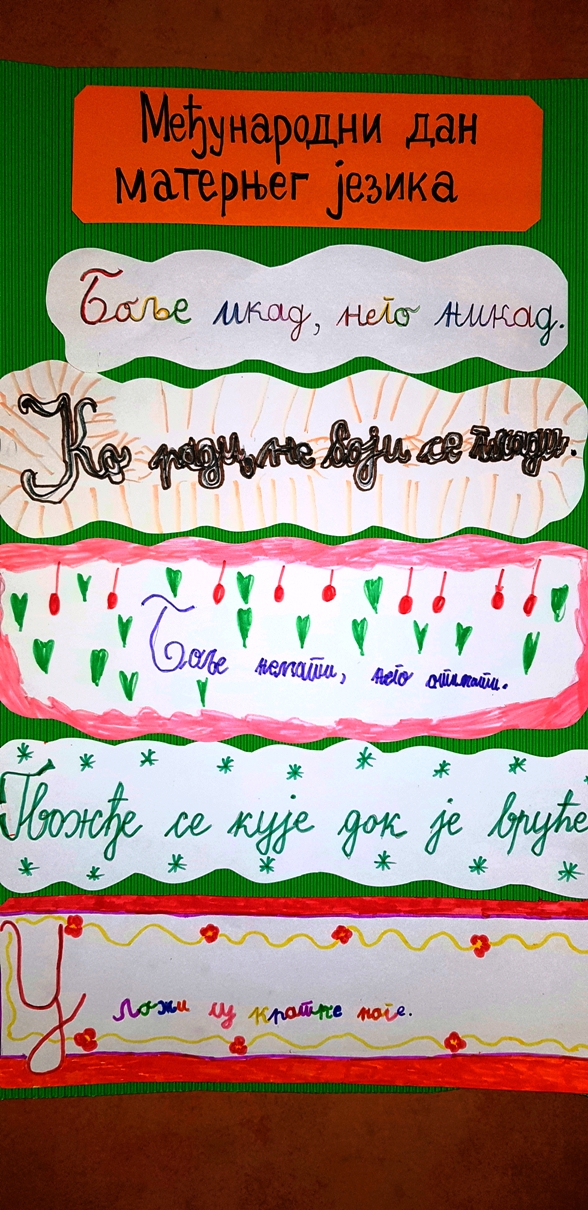 Међународни дан
матерњег језика
Боље икад, него никад.
Ко ради, не боји се глади.
Боље немати, него отимати.
Гвожђе се кује док је вруће
У лажи су кратке ноге.